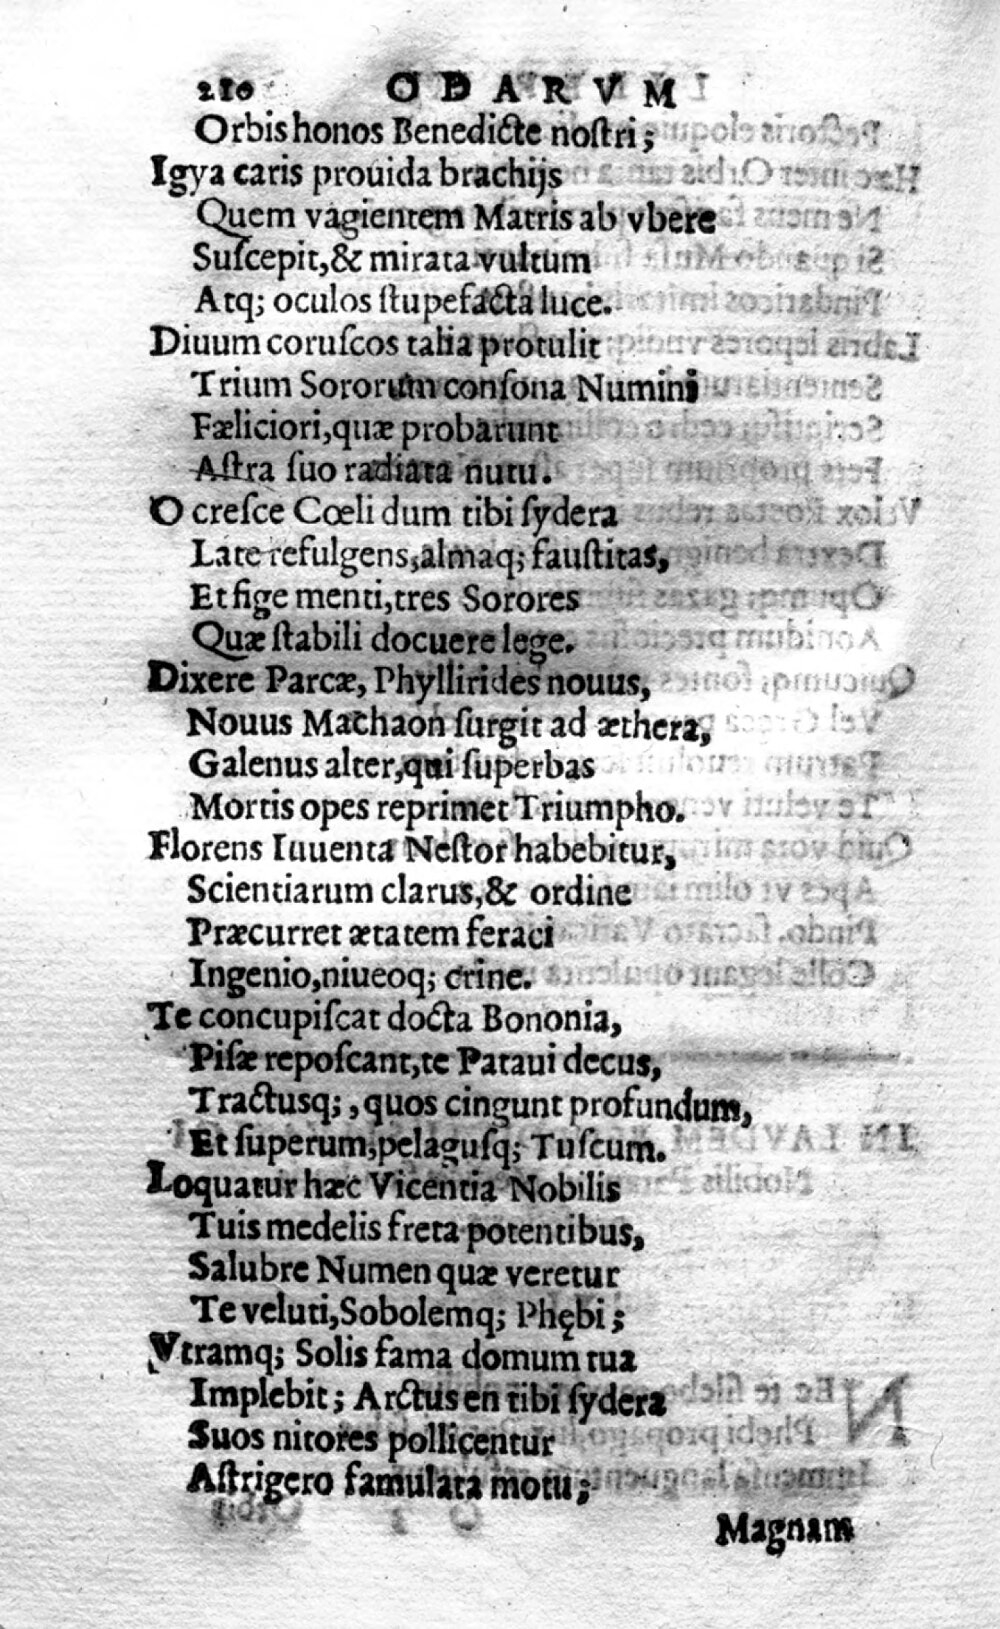 210 ODARVM
Orbis honos Benedicte noſtri;
Igya caris prouida brachijs
Quem vagientem Matris ab vbere
Suſcepit,& mirata vultum
Atq; oculos ſtupefacta luce.
Diuum coruſcos talia protulit
Trium Sororum conſona Numini
Fæliciori,quæ probarunt
Aſtra ſuo radiata nutu.
O creſce Cœli dum tibi ſydera
Late refulgens,almaq; fauſtitas,
Et fige menti,tres Sorores
Quæ ſtabili docuere lege.
Dixere Parcæ, Phyllirides nouus,
Nouus Machaon ſurgit ad æthera,
Galenus alter,qui ſuperbas
Mortis opes reprimet Triumpho.
Florens Iuuenta Neſtor habebitur,
Scientiarum clarus,& ordine
Præcurret ætatem feraci
Ingenio,niueoq; crine.
Te concupiſcat docta Bononia,
Piſæ repoſcant,te Pataui decus,
Tractusq; , quos cingunt profundum,
Et ſuperum,pelaguſq; Tuſcum.
Loquatur hæc Vicentia Nobilis
Tuis medelis freta potentibus,
Salubre Numen quæ veretur
Te veluti,Sobolemq; Phębi;
Vtramq; Solis fama domum tua
Implebit; Arctus en tibi ſydera
Suos nitores pollicentur
Aſtrigero famulata motu;
Magnam